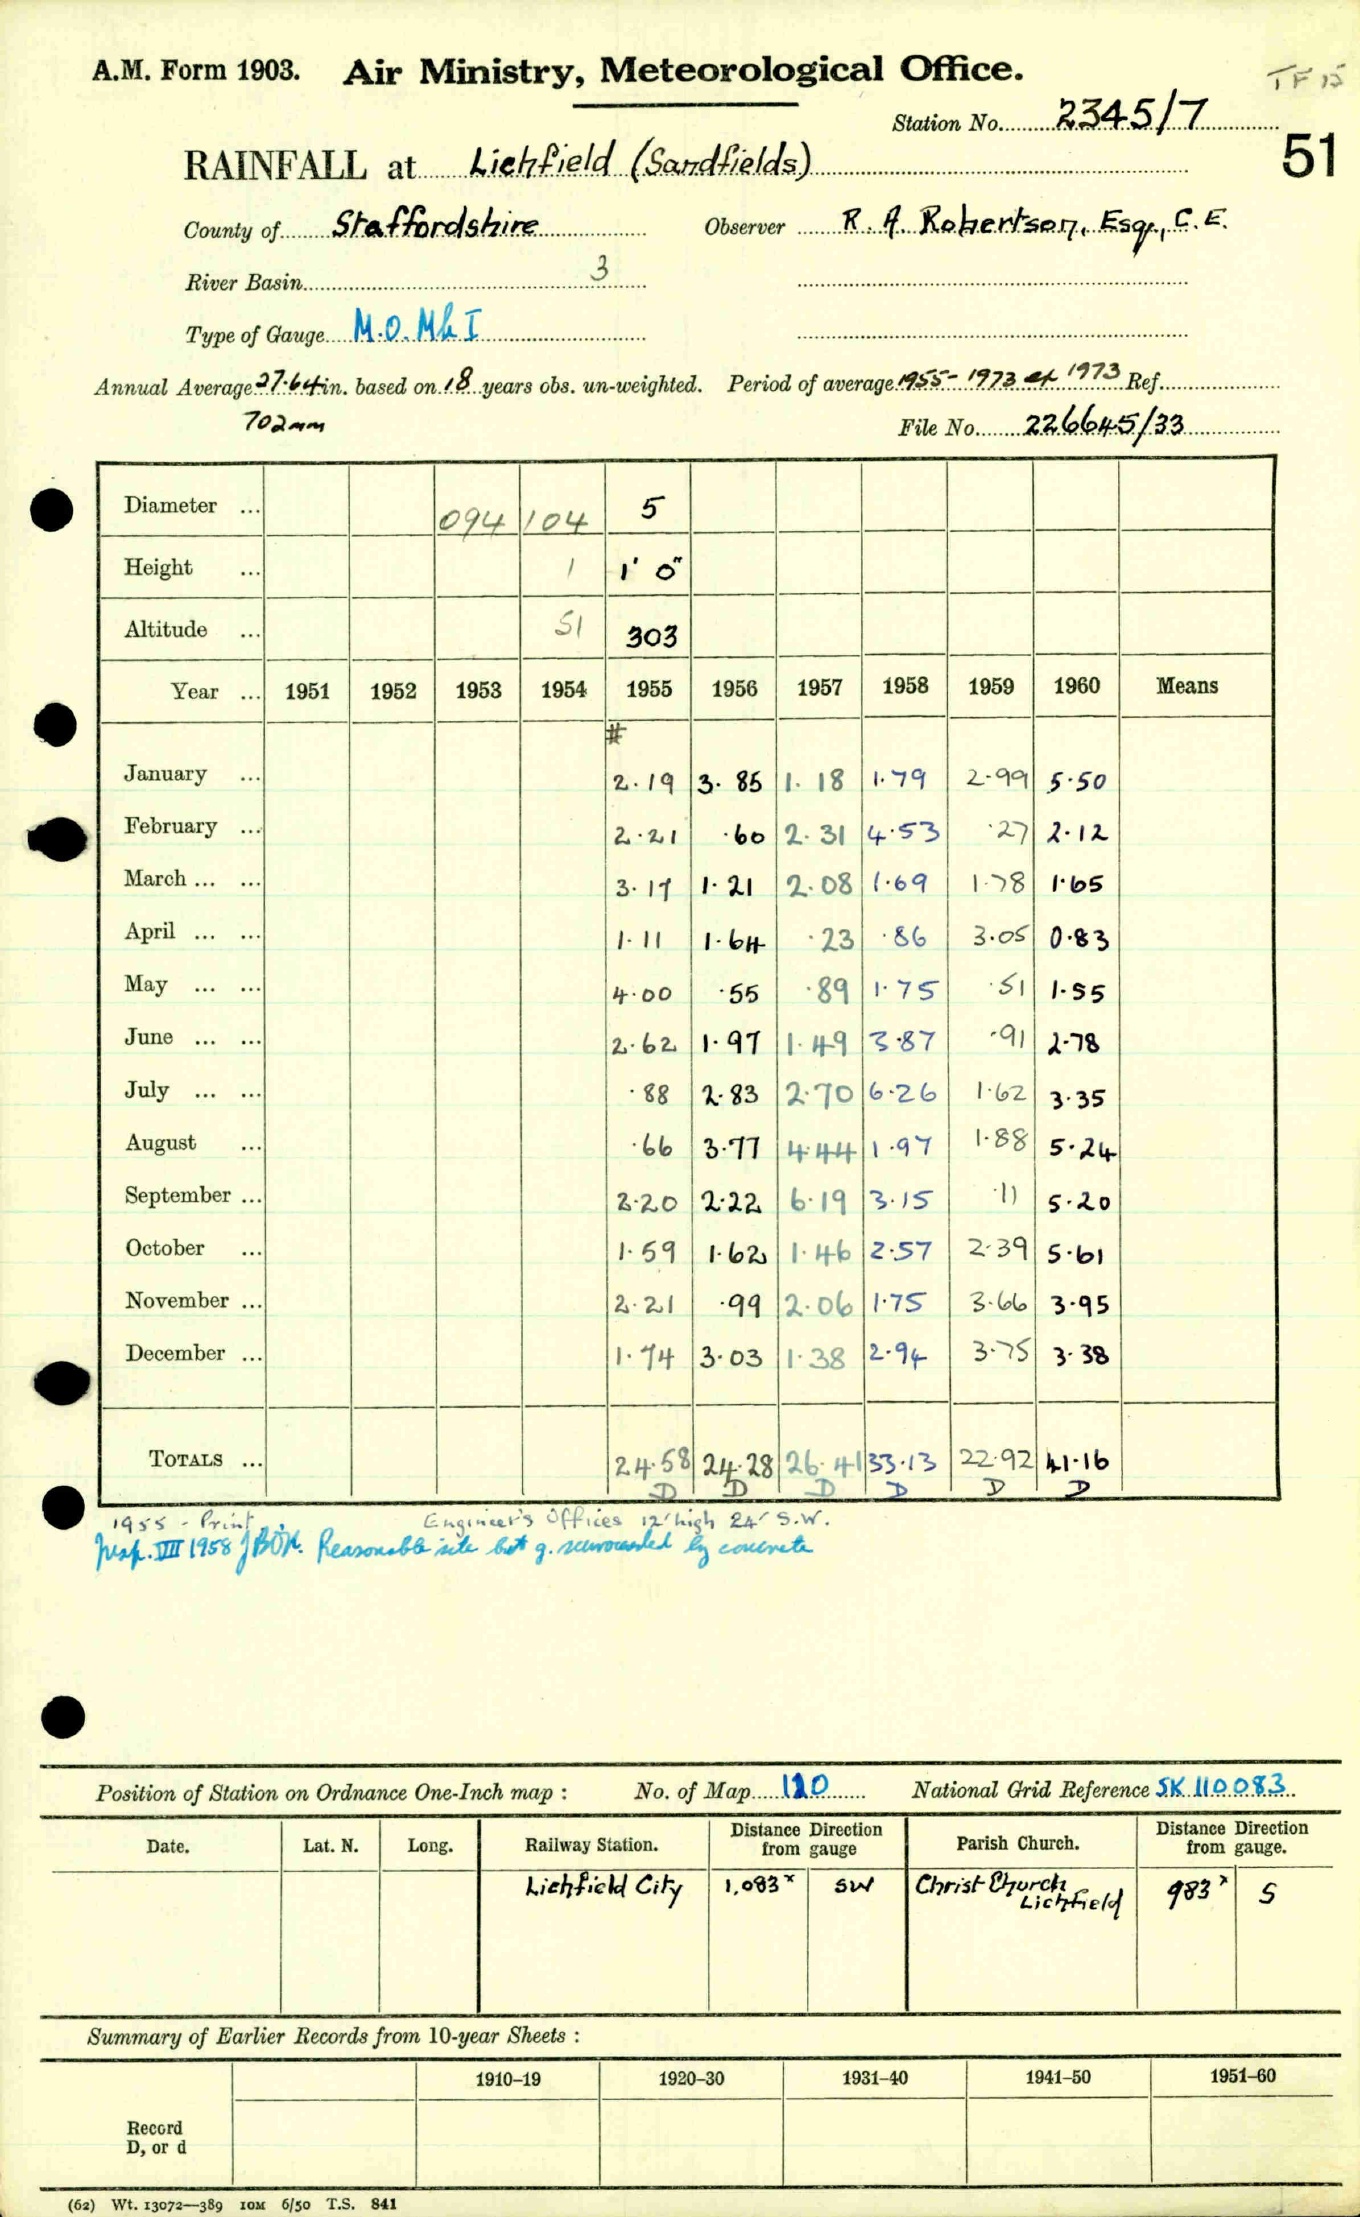 A.M. Form 1903. Air Ministry, Meteorological Office. TF 15
Station No. 2345/7
51
RAINFALL at Lichfield (Sandfields)
County of Staffordshire Observer R. A. Robertson, Esq., C.E.
River Basin 3
Type of Gauge M.O. Mk I
Annual Average 27.64 in. based on 18 years obs. un-weighted. Period of average 1955-1973 ex 1973 Ref.
702mm File No. 226645/33
Diameter ... 094 104 5
Height ... 1 1' 0"
Altitude ... 51 303
Year ... 1951 1952 1953 1954 1955 1956 1957 1958 1959 1960 Means
#
January ... 2.19 3.85 1.18 1.79 2.99 5.50
February ... 2.21 .60 2.31 4.53 .27 2.12
March ... ... 3.17 1.21 2.08 1.69 1.78 1.65
April ... ... 1.11 1.64 .23 .86 3.05 0.83
May ... ... 4.00 .55 .89 1.75 .51 1.55
June ... ... 2.62 1.97 1.49 3.87 .91 2.78
July ... ... .88 2.83 2.70 6.26 1.62 3.35
August ... .66 3.77 4.44 1.97 1.88 5.24
September ... 2.20 2.22 6.19 3.15 .11 5.20
October ... 1.59 1.62 1.46 2.57 2.39 5.61
November ... 2.21 .99 2.06 1.75 3.66 3.95
December ... 1.74 3.03 1.38 2.94 3.75 3.38
TOTALS ... 24.58 24.28 26.41 33.13 22.92 41.16
D D D D D D
1955 - Print. Engineer's Offices 12' high 24' S.W.
Insp. VIII 1958 Reasonable site but g. surrounded by concrete
Position of Station on Ordnance One-Inch map : No. of Map 120 National Grid Reference SK 110083
Date. Lat. N. Long. Railway Station. Distance Direction from gauge Parish Church. Distance Direction from gauge.
Lichfield City 1,083x SW Christ Church Lichfield 983x S
Summary of Earlier Records from 10-year Sheets :
1910–19 1920–30 1931–40 1941–50 1951–60
Record
D, or d
(62) Wt. 13072—389 10M 6/50 T.S. 841